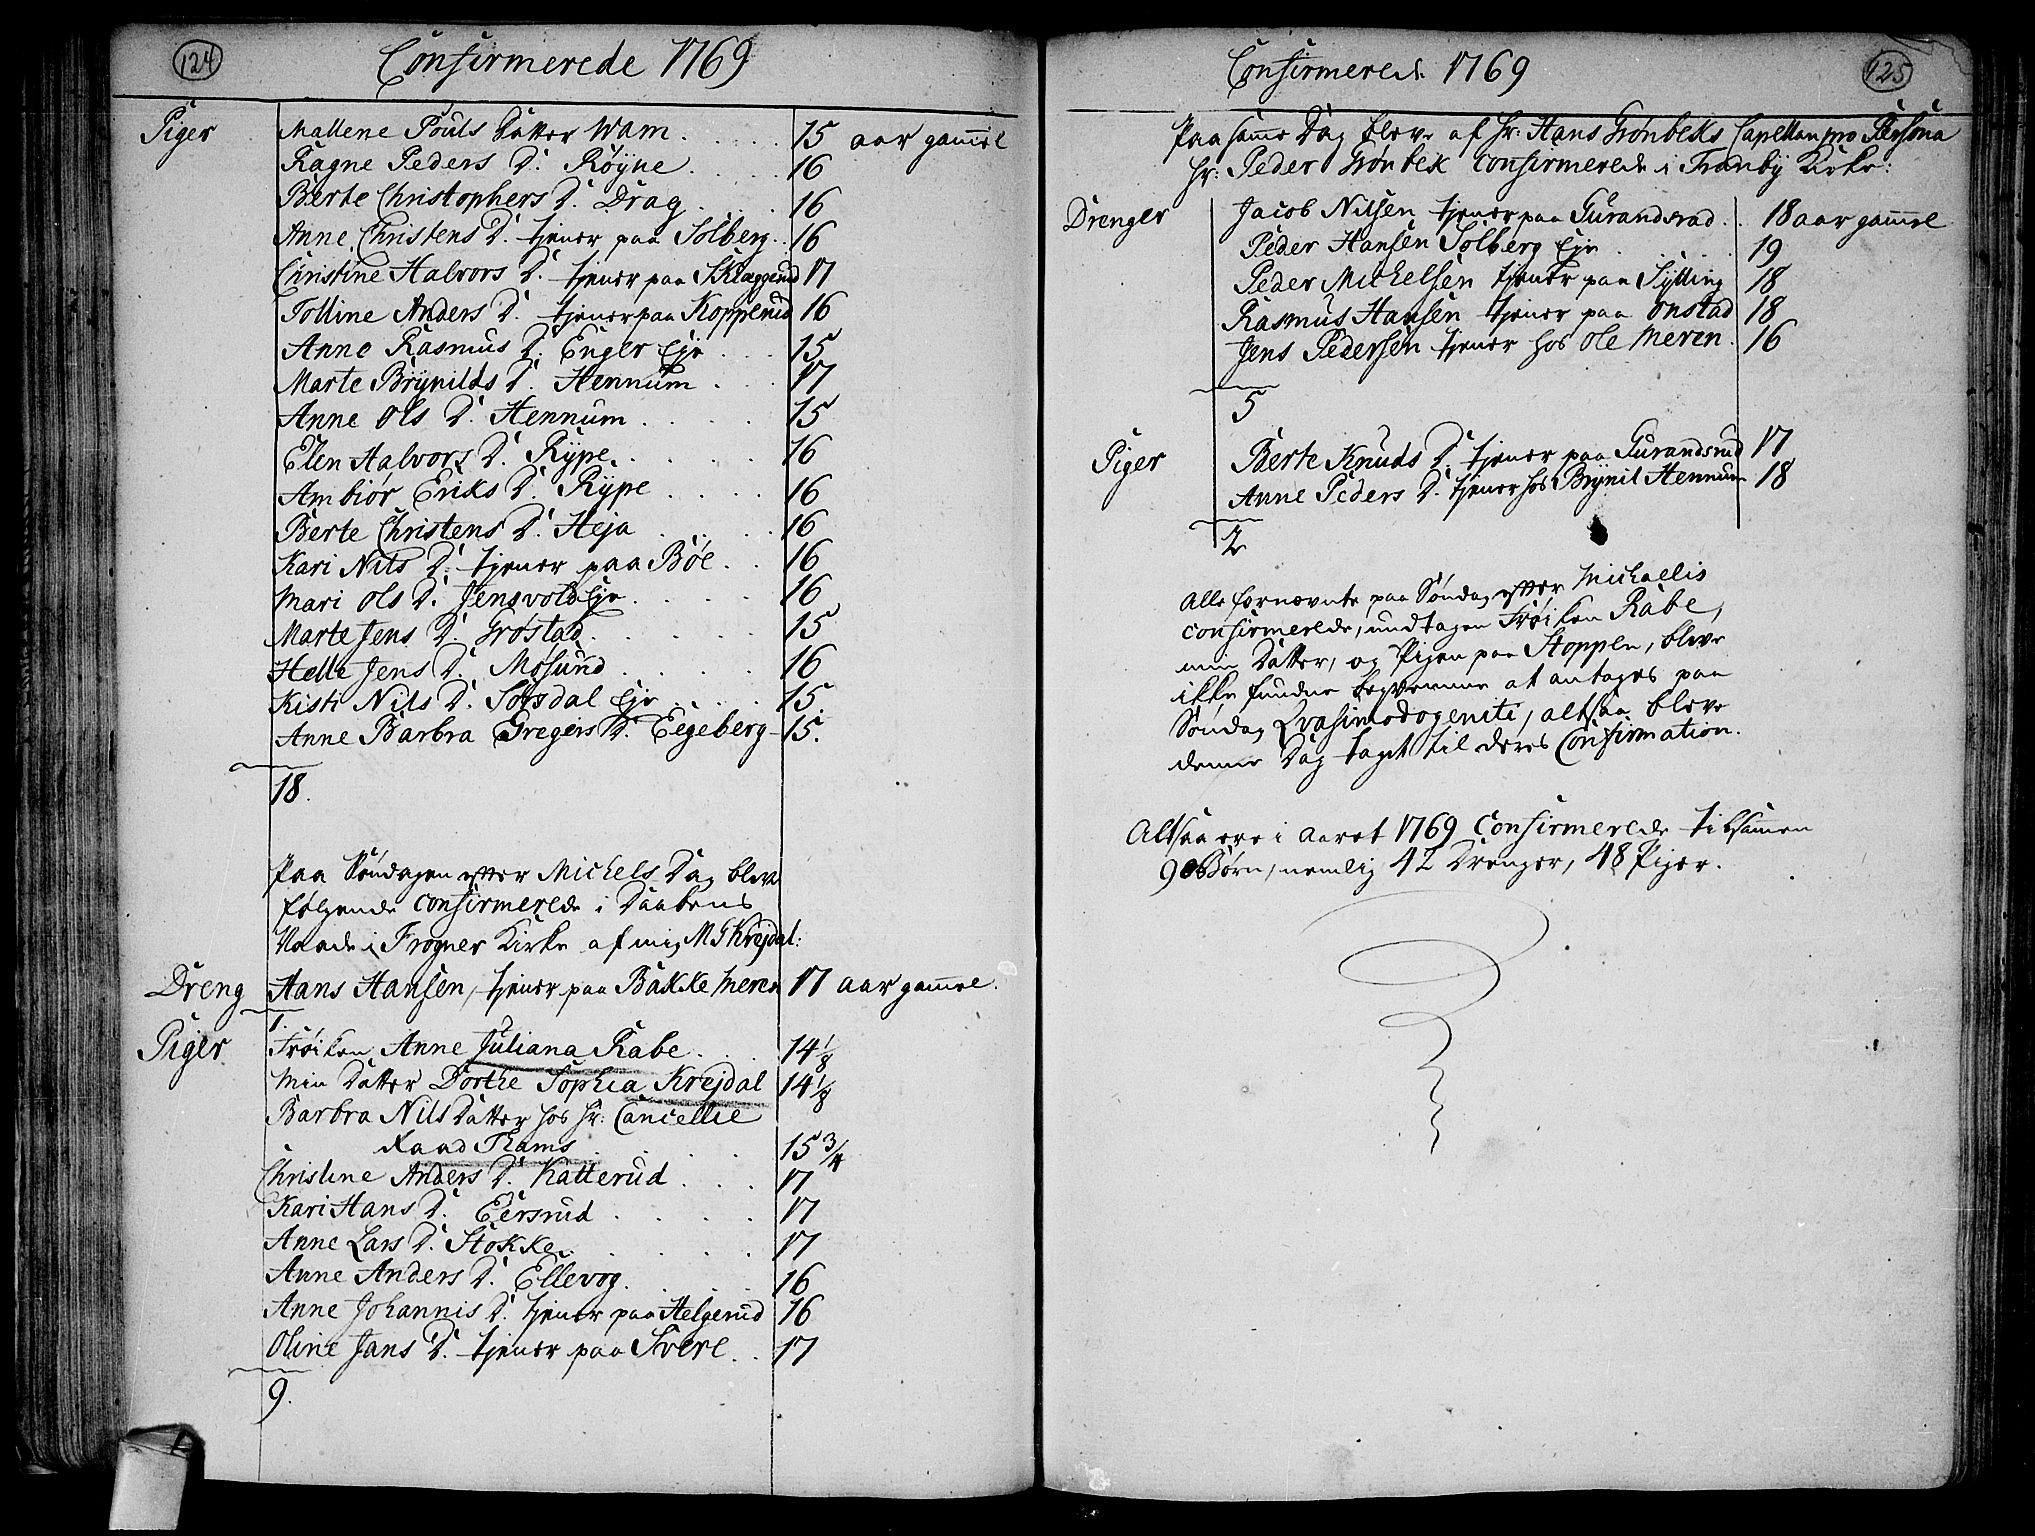 124
Confirmerede 1769
Piger
Mallene Pouls Datter Wam . . . . 15 aar gam̄el
Ragne Peders D. Røyne . . . . 16
Berte Christophers D. Drag . . . . 16
Anne Christens D. tjener paa Solberg . . 16
Christine Halvors D. tjener paa Sklaggerud 17
Tolline Anders D. tjener paa Kopperud 16
Anne Rasmus D. Enger Eje . . . 15
Marte Brÿnilds D. Hennum . . . 17
Anne Ols D. Hennum . . . . 15
Elen Halvors D. Rÿpe . . . . 16
Ambiør Eriks D. Rÿpe . . . . 16
Berte Christens D. Heja . . . . 16
Kari Nils D. tjener paa Bøe . . 16
Mari Ols D. Jensvold Eje . . . . 16
Marte Jens D. Grøstad . . . . 15
Helle Jens D. Møsund . . . . 16
Kisti Nils D. Solsdal Eje . . . . 15.
Anne Barbra Gregers D. Eegeberg - 15.
18.
Paa Søndagen efter Michels Dag bleve
følgende confirmerede i Daabens
Naade i Frogner Kirke af mig M S Krejdal:
Dreng Hans Hansen, tjener paa Bakke Meren 17 aar gam̄el.
1.
Piger Frøiken Anne Juliana Rabe . . 14 1/8
Min Datter Dorthe Sophia Krejdal 14 1/8
Barbra Nils Datter hos Hr: Cancellie
Raad Thams . . . . 15 3/4
Christine Anders D. Katterud . . . 17
Kari Hans D. Eersrud . . . . 17
Anne Lars D. Stokke . . . . 17
Anne Anders D. Ellevog . . . . 16
Anne Johannis D. tjener paa Helgerud 16
Oline Jans D. tjener paa Svere . . 17
9.
125
Confirmerede 1769
Paa samme Dag bleve af Hr: Hans Grønbeks Capellan pro Persona
Hr: Peder Grønbek confirmerede i Tranbÿ Kirke:
Drenger
Jacob Nilsen tjener paa Gurandsrud . . 18 aar gam̄el
Peder Hansen Solberg Eje . . 19
Peder Michelsen tjener paa Sÿlling 18
Rasmus Hansen tjener paa Onstad 18
Jens Pedersen tjener hos Ole Meren . 16
5
Piger
Berte Knuds D. tjener paa Gurandsrud 17
Anne Peders D. tjener hos Brÿnil Hennum 18
2
Alle fornævnte paa Søndag efter Michaelis
confirmerede, undtagen Frøiken Rabe,
min Datter, og Pigen paa Stoppen, bleve
ikke fundne beqvemme at antages paa
Søndag Qvasimodogeniti, altsaa bleve
denne Dag taget til deres Confirmation.
Altsaa ere i Aaret 1769 Confirmerede tilsamen
90 Børn, nemlig 42 Drenger, 48 Piger.